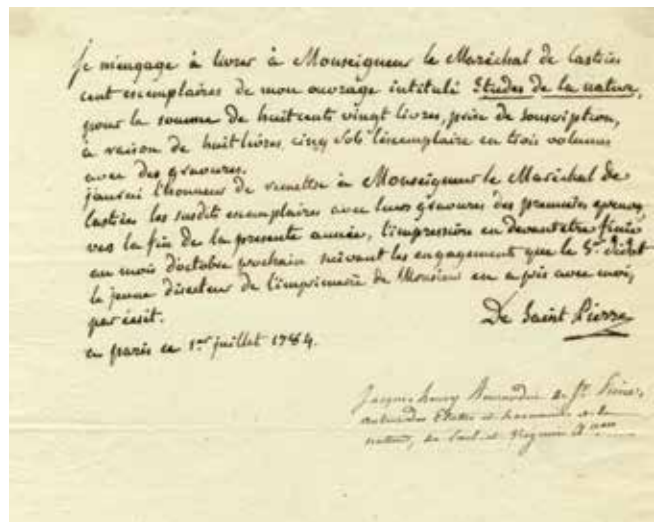 je m'engage à livrer à Monseigneur le Maréchal de Castries
cent exemplaires de mon ouvrage intitulé Etudes de la nature,
pour la somme de huit cents vingt livres, prix de souscription,
à raison de huit livres, cinq sols l'exemplaire en trois volumes
avec des gravures.
j'aurai l'honneur de remettre à Monseigneur le Maréchal de
Castries les susdits exemplaires avec leurs gravures des premieres epreuves
vers la fin de la presente année, l'impression en devant etre finie
au mois d'octobre prochain suivant les engagement que le Sr. Didot
le jeune directeur de l'imprimerie de Monsieur en a pris avec moi,
par écrit.
en paris ce 1er juillet 1784.
De Saint Pierre
Jacques henry Bernardin de St. Pierre,
auteur des Etudes et harmonies de la
nature, de Paul et Virginie